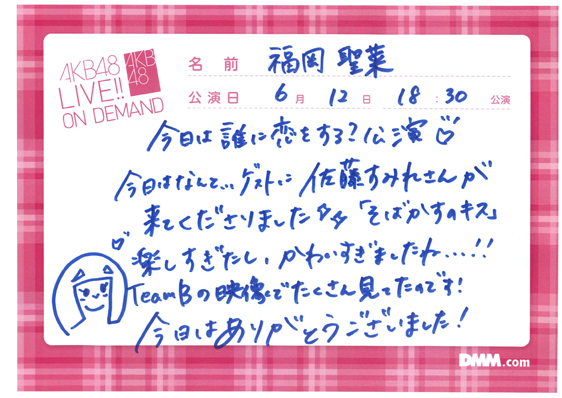 AKB48
LIVE!!
ON DEMAND
AKB
48
名 前 福岡 聖菜
公演日 6月 12日 18:30 公演
今日は誰に恋をする?公演♡
今日はなんと…ゲストに 佐藤すみれさんが
来てくださりました☆☆「そばかすのキス」
楽しすぎたし、かわいすぎましたね…!!
TeamBの映像でたくさん見てたのです!
今日はありがとうございました!
DMM.com